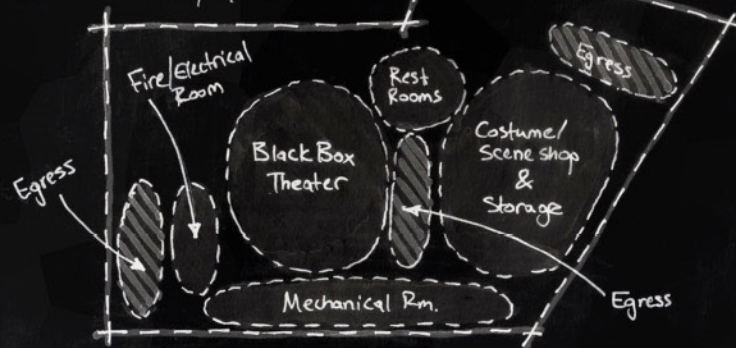 Fire/Electrical
Room
Rest
Rooms
Egress
Black Box
Theater
Costume/
Scene shop
&
Storage
Egress
Mechanical Rm.
Egress